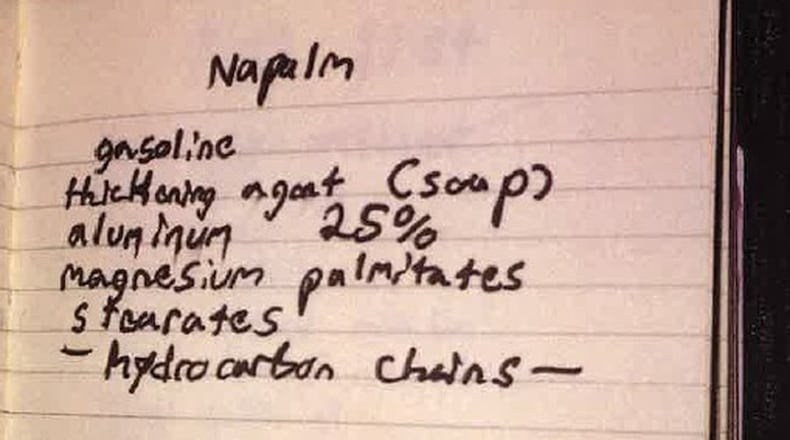 Napalm
gasoline
thickening agent (soap)
aluminum 25%
magnesium palmitates
stearates
- hydrocarbon chains -